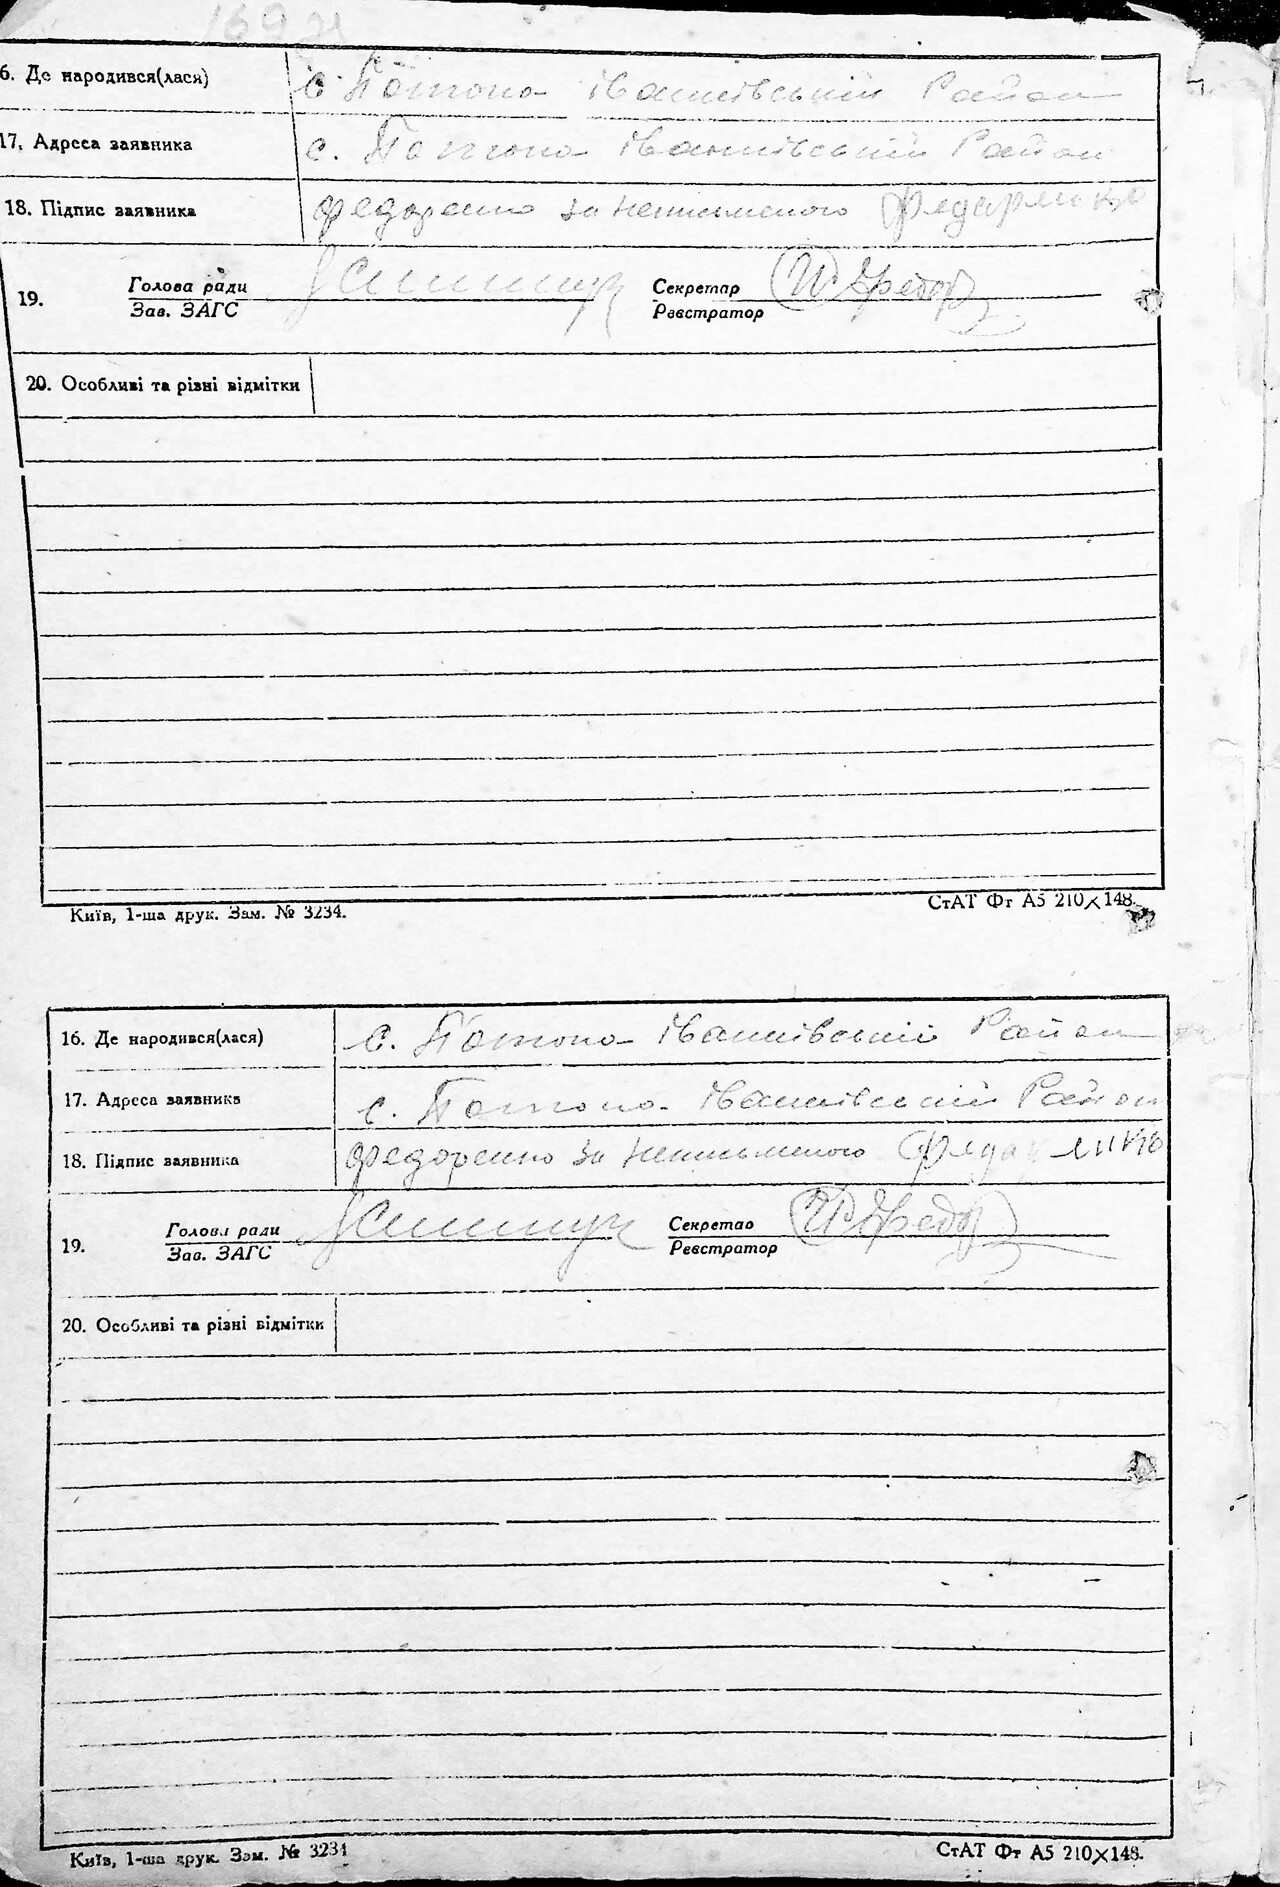 169зв
6. Де народився(лася) с. Потоки Іванківський Район
17. Адреса заявника с. Потоки Іванківський Район
18. Підпис заявника Федоренко за неписьменого Федоренко
19. Голова ради Секретар
Зав. ЗАГС Реєстратор
20. Особливі та різні відмітки
Київ, 1-ша друк. Зам. № 3234. СтАТ Фт А5 210×148.
16. Де народився(лася) с. Потоки Іванківський Район
17. Адреса заявника с. Потоки Іванківський Район
18. Підпис заявника Федоренко за неписьменого
19. Голова ради Секретар
Зав. ЗАГС Реєстратор
20. Особливі та різні відмітки
Київ, 1-ша друк. Зам. № 3234 СтАТ Фт А5 210×148.